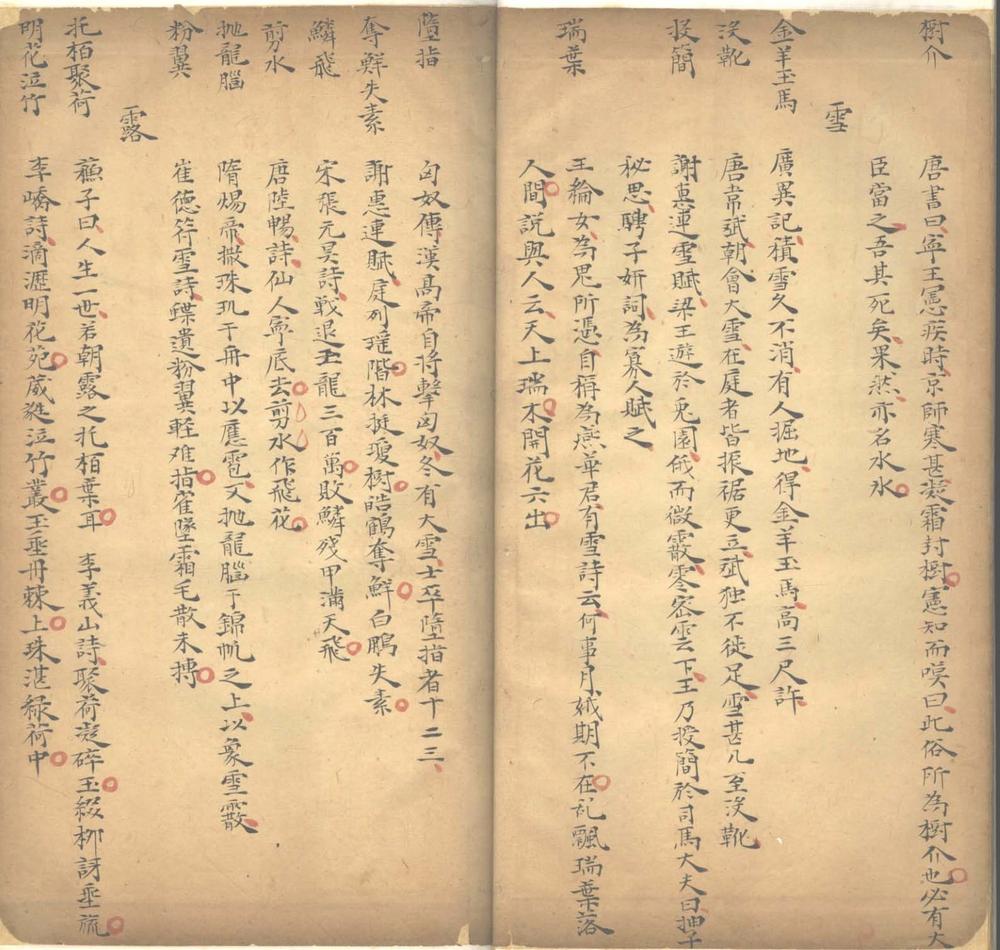 樹介
唐書曰寧王憲疾時京師寒甚凝霜封樹憲知而嘆曰此俗所為樹介也必有大
臣當之吾其死矣果然亦名水氷
雪
金羊玉馬
廣異記積雪久不消有人掘地得金羊玉馬高三尺許
沒靴
唐常斌朝會大雪在庭者皆振裾更立斌独不徙足雪甚几至沒靴
投簡
謝惠連雪賦梁王遊於兎園俄而微霰零密雲下王乃授簡於司馬大夫曰抽子
秘思騁子妍詞為寡人賦之
瑞葉
王綸女為鬼所憑自稱為燕華君有雪詩云何事月娥期不在乱飄瑞葉落
人間説與人云天上瑞木開花六出
墮指
匈奴傳漢高帝自将擊匈奴冬有大雪士卒墮指者十二三
奪鮮失素
謝惠連賦庭列瑤階林挺瓊樹皓鶴奪鮮白鷴失素
鱗飛
宋張元昊詩戰退玉龍三百萬敗鱗残甲滿天飛
剪水
唐陸暢詩仙人寧底去剪水作飛花
抛龍腦
隋煬帝撒珠玑于舟中以應雹又抛龍腦于錦帆之上以象雪霰
粉翼
崔德符雪詩蝶遺粉翼軽难指寉墜霜毛散未摶
露
托栢聚荷
蘓子曰人生一世若朝露之托栢葉耳 李義山詩聚荷凝碎玉綴柳訝垂
明花泣竹
李嶠詩滴瀝明花苑葳蕤泣竹叢玉垂丹棘上珠湛緑荷中